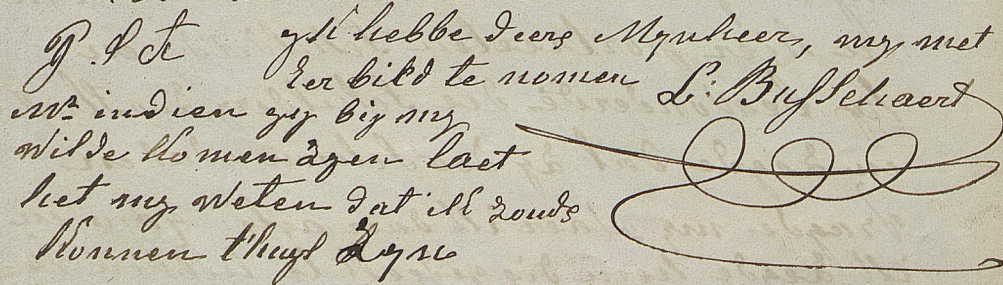 P. S. te yk hebbe d'eere Mynheer, my met
Eer bild te nomen
L: Busschaert
Mr indien gy by my
wilde komen zyen laet
het my weten dat ik zoude
konnen t'huys zyn